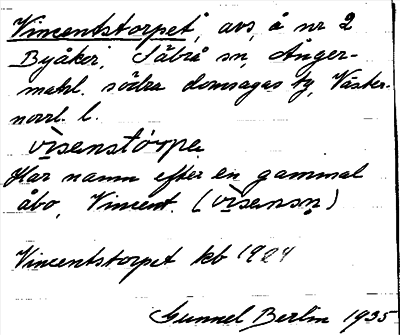 Vincentstorpet, avs, å nr 2
Byåker, Säbrå sn, Ånger-
manl. södra domsagas tg, Väster-
norrl. l.
visenstórpe
Har namn efter en gammal
åbo, Vincent. (visensn̥)
Vincentstorpet kb 1924
Gunnel Berlin 1935